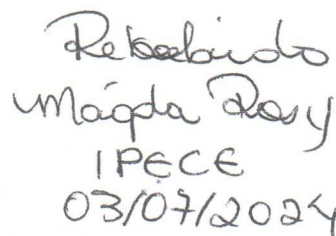 Recebido
Mágda Rosy
IPECE
03/07/2024